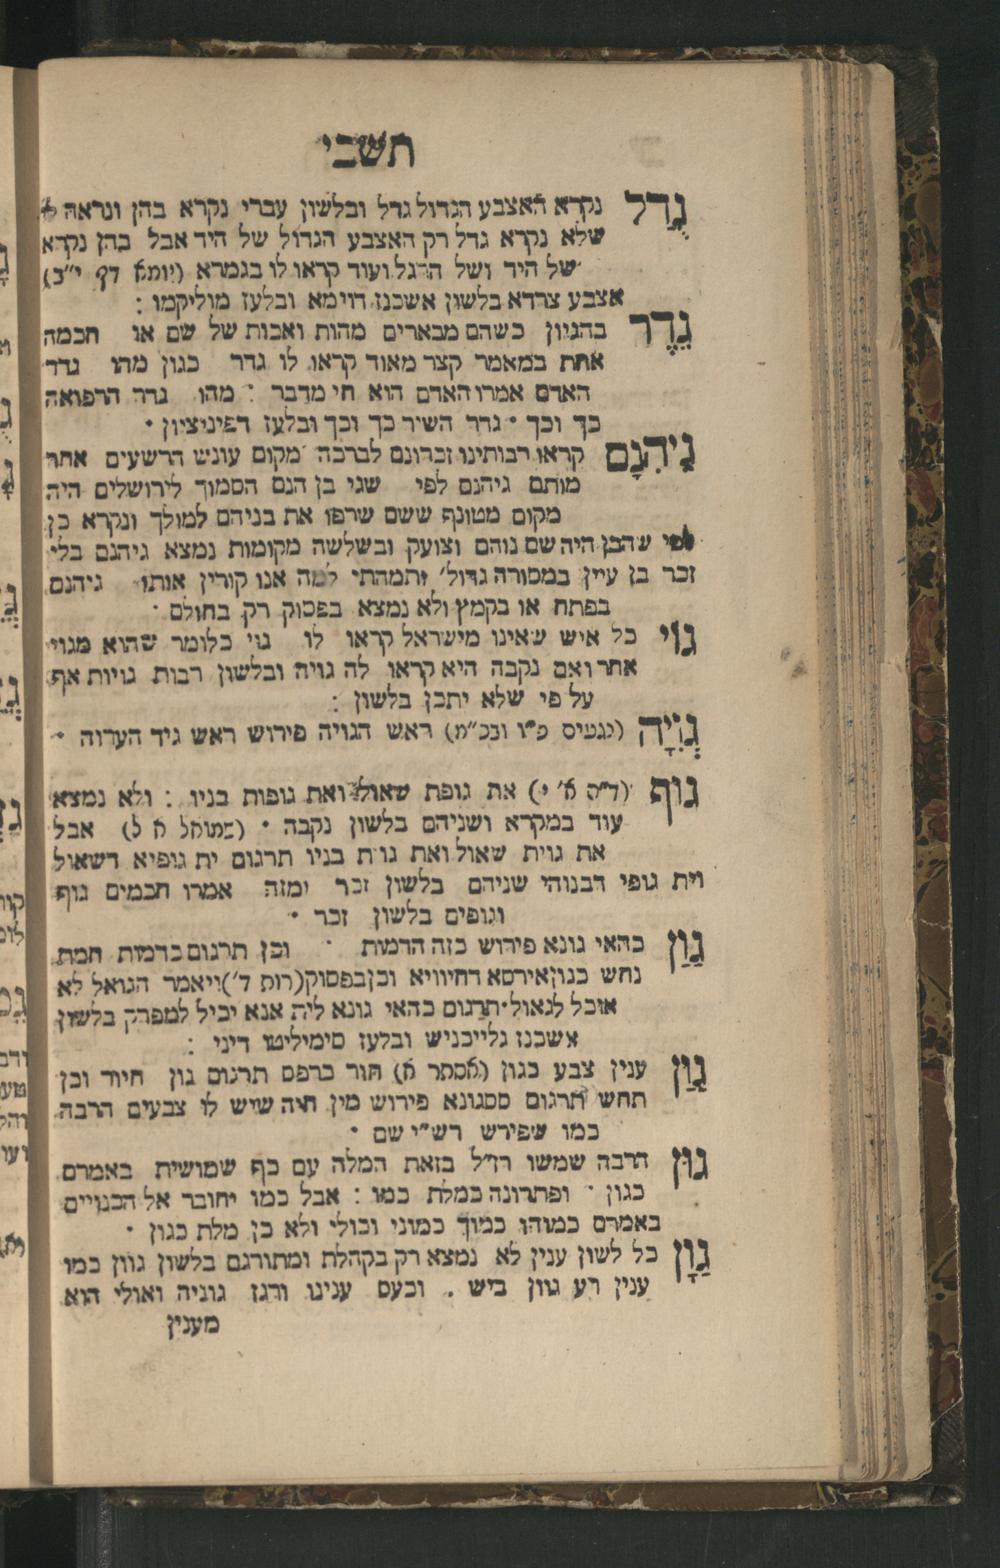 תשבי
גֻדל נקרא האצבע הגדול גדל ובלשון עברי נקרא בהן ונראה לי
שלא נקרא גדל רק האצבע הגדול של היד אבל בהן נקרא
של היד ושל הרגל ועוד קראו לו בגמרא (יומא דף י״ב)
אצבע צרדא בלשון אשכנז דוימא ובלעז מוליקמו :
גֶדֶר בהגיון כשהם מבארים מהות ואבות של שם או חכמה
אחת במאמר קצר מאוד קראו לו גדר כגון מהו גדר
האדם אמרו האדם הוא חי מדבר · מהו גדר הרפואה
כך וכך · גדר השיר כך וכך ובלעז דפיניציון ·
גֵיהִנָם קראו רבותינו זכרונם לברכה מקום עונש הרשעים אחר
מותם גיהנם לפי שגי בן הנם הסמוך לירושלים היה
מקום מטונף ששם שרפו את בניהם למולך ונקרא כן
לפי שהבן היה שם נוהם וצועק ובשלשה מקומות נמצא גיהנם בלי
זכר בן עיין במסורה גדול׳ ותמהתי למה אנו קורין אותו גיהנם
בפתח או בקמץ ולא נמצא בפסוק רק בחולם ·
גוֹי כל איש שאינו מישראל קראו לו גוי כלומר שהוא מגוי
אחר ואם נקבה היא קראו לה גויה ובלשון רבות גויות אף
על פי שלא יתכן בלשון :
גְוִיָה (נגטיס פ״ו ובכ״מ) ראש הגויה פירוש ראש גיד הערוה ·
גוּף (ד״ה א׳ י) את גופת שאול ואת גופות בניו : ולא נמצא
עוד במקרא ושניהם בלשון נקבה · (שמואל א ל) אבל
את גוית שאול ואת גוית בניו תרגום ית גופיא דשאול
וית גופי דבנוהי שניהם בלשון זכר ומזה אמרו חכמים גוף
וגופים בלשון זכר ·
גַוַן כהאי גונא פירוש כזה הדמות · וכן תרגום כדמות חמת
נחש כגון אירסא דחיוויא וכן בפסוק (רות ד׳) ויאמר הגואל לא
אוכל לגאול יתרגום כהאי גונא לית אנא יכיל למפרק בלשון
אשכנז גלייכניש ובלעז סימיליטו דיני :
גַוָן ענין צבע כגון (אסתר א) חור כרפס תרגום גון חיור וכן
תחש תרגום ססגונא פירוש מין חיה שיש לו צבעים הרבה
כמו שפירש רש״י שם ·
גוֹן הרבה שמשו רז״ל בזאת המלה עם כף שמושית באמרם
כגון · ופתרונה כמלת כמו : אבל כמו יחובר אל הכנויים
באמרם כמוהו כמוך כמוני וכולי ולא כן מלת כגון ·
גַוָן כל לשון ענין לא נמצא רק בקהלת ומתורגם בלשון גוון כמו
ענין רע גוון ביש . וכעס ענינו ורגז גוניה ואולי הוא
מענין